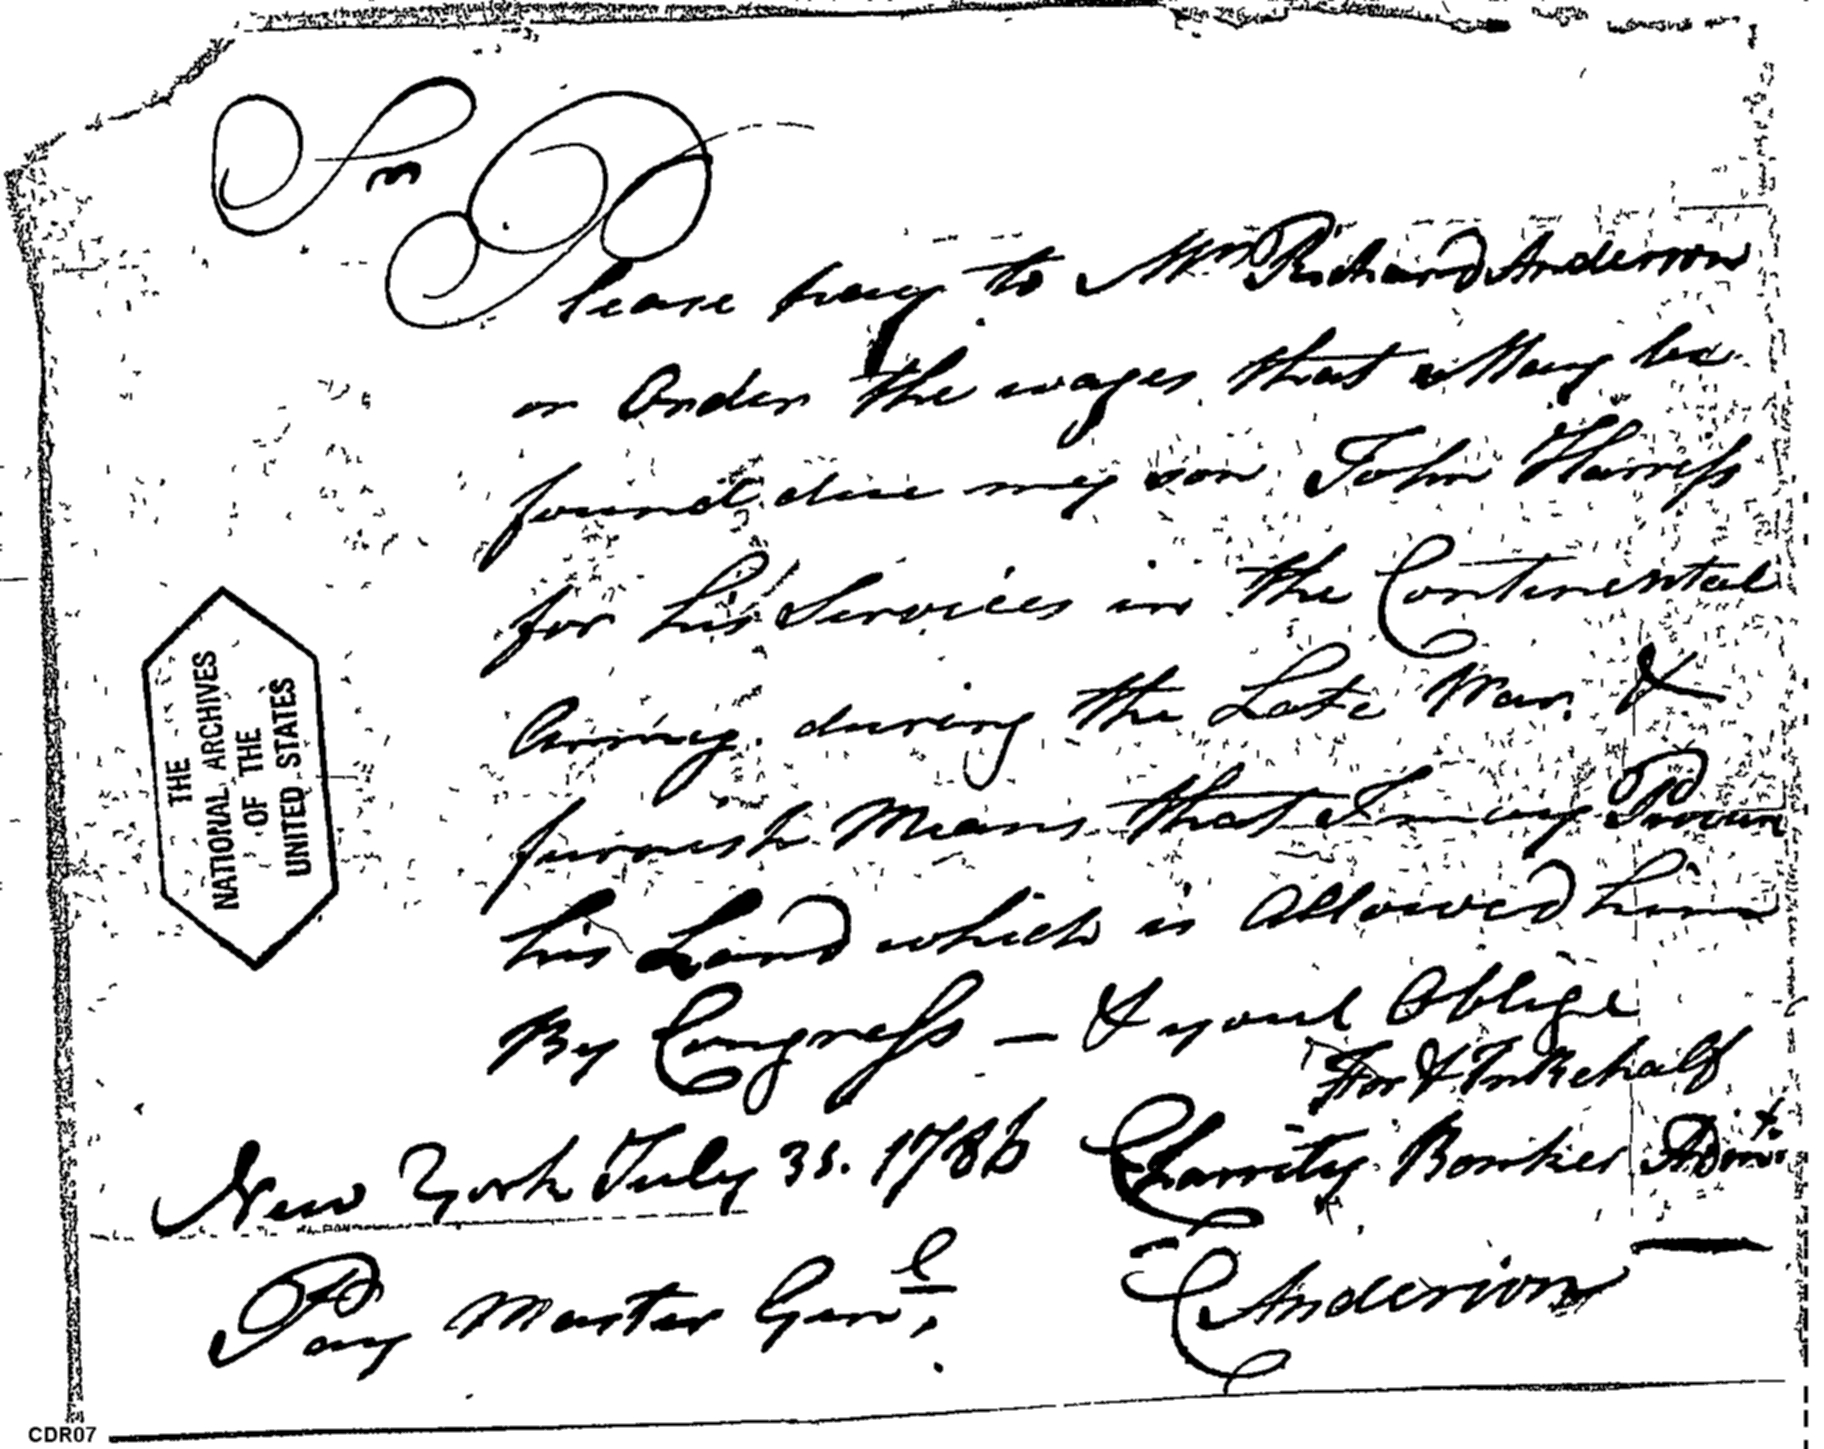 Sir
Please pay to Mr Richard Anderson
or Order the wages that May be
found due my son John Harress
for his Services in the Continental
Army. during the Late War. &
furnish Means that I may Procure
his Land which is Allowed him
By Congress — & youl Oblige
For & In Behalf
New York July 31. 1786 Charrity Bonker Admt.
Pay Master Genl. C Anderson
THE
NATIONAL ARCHIVES
OF THE
UNITED STATES
CDR07